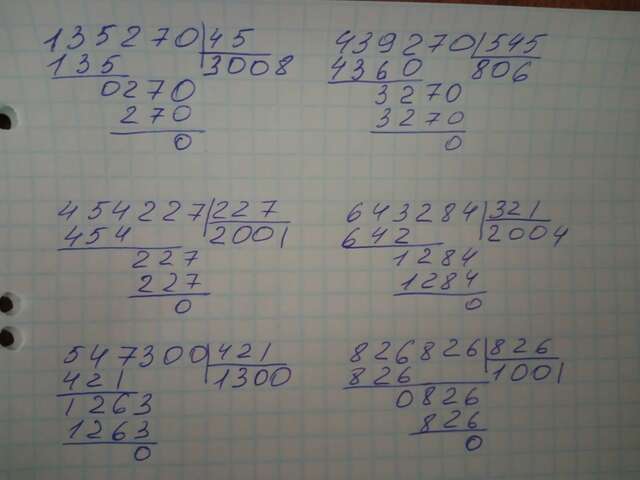 135270 45
135 3008
0270
270
0
439270 545
4360 806
3270
3270
0
454227 227
454 2001
227
227
0
643284 321
642 2004
1284
1284
0
547300 421
421 1300
1263
1263
0
826826 826
826 1001
0826
826
0